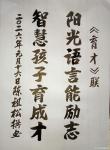 《育才》联
阳光语言能励志
智慧孩子育成才
二〇二六年元月十六日 陈祖松撰书